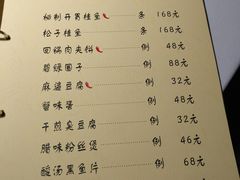 秘制丹男桂鱼 条 168元
松子桂鱼 条 168元
回锅肉夹饼 例 48元
碧绿圈子 例 88元
麻婆豆腐 例 32元
蟹味羹 例 48元
干煎臭豆腐 例 32元
腊味粉丝煲 例 46元
酸汤黑鱼片 例 68元